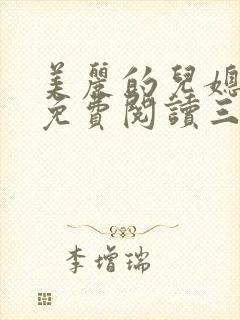 美麗的兒媳
免費閱讀三
李增瑞